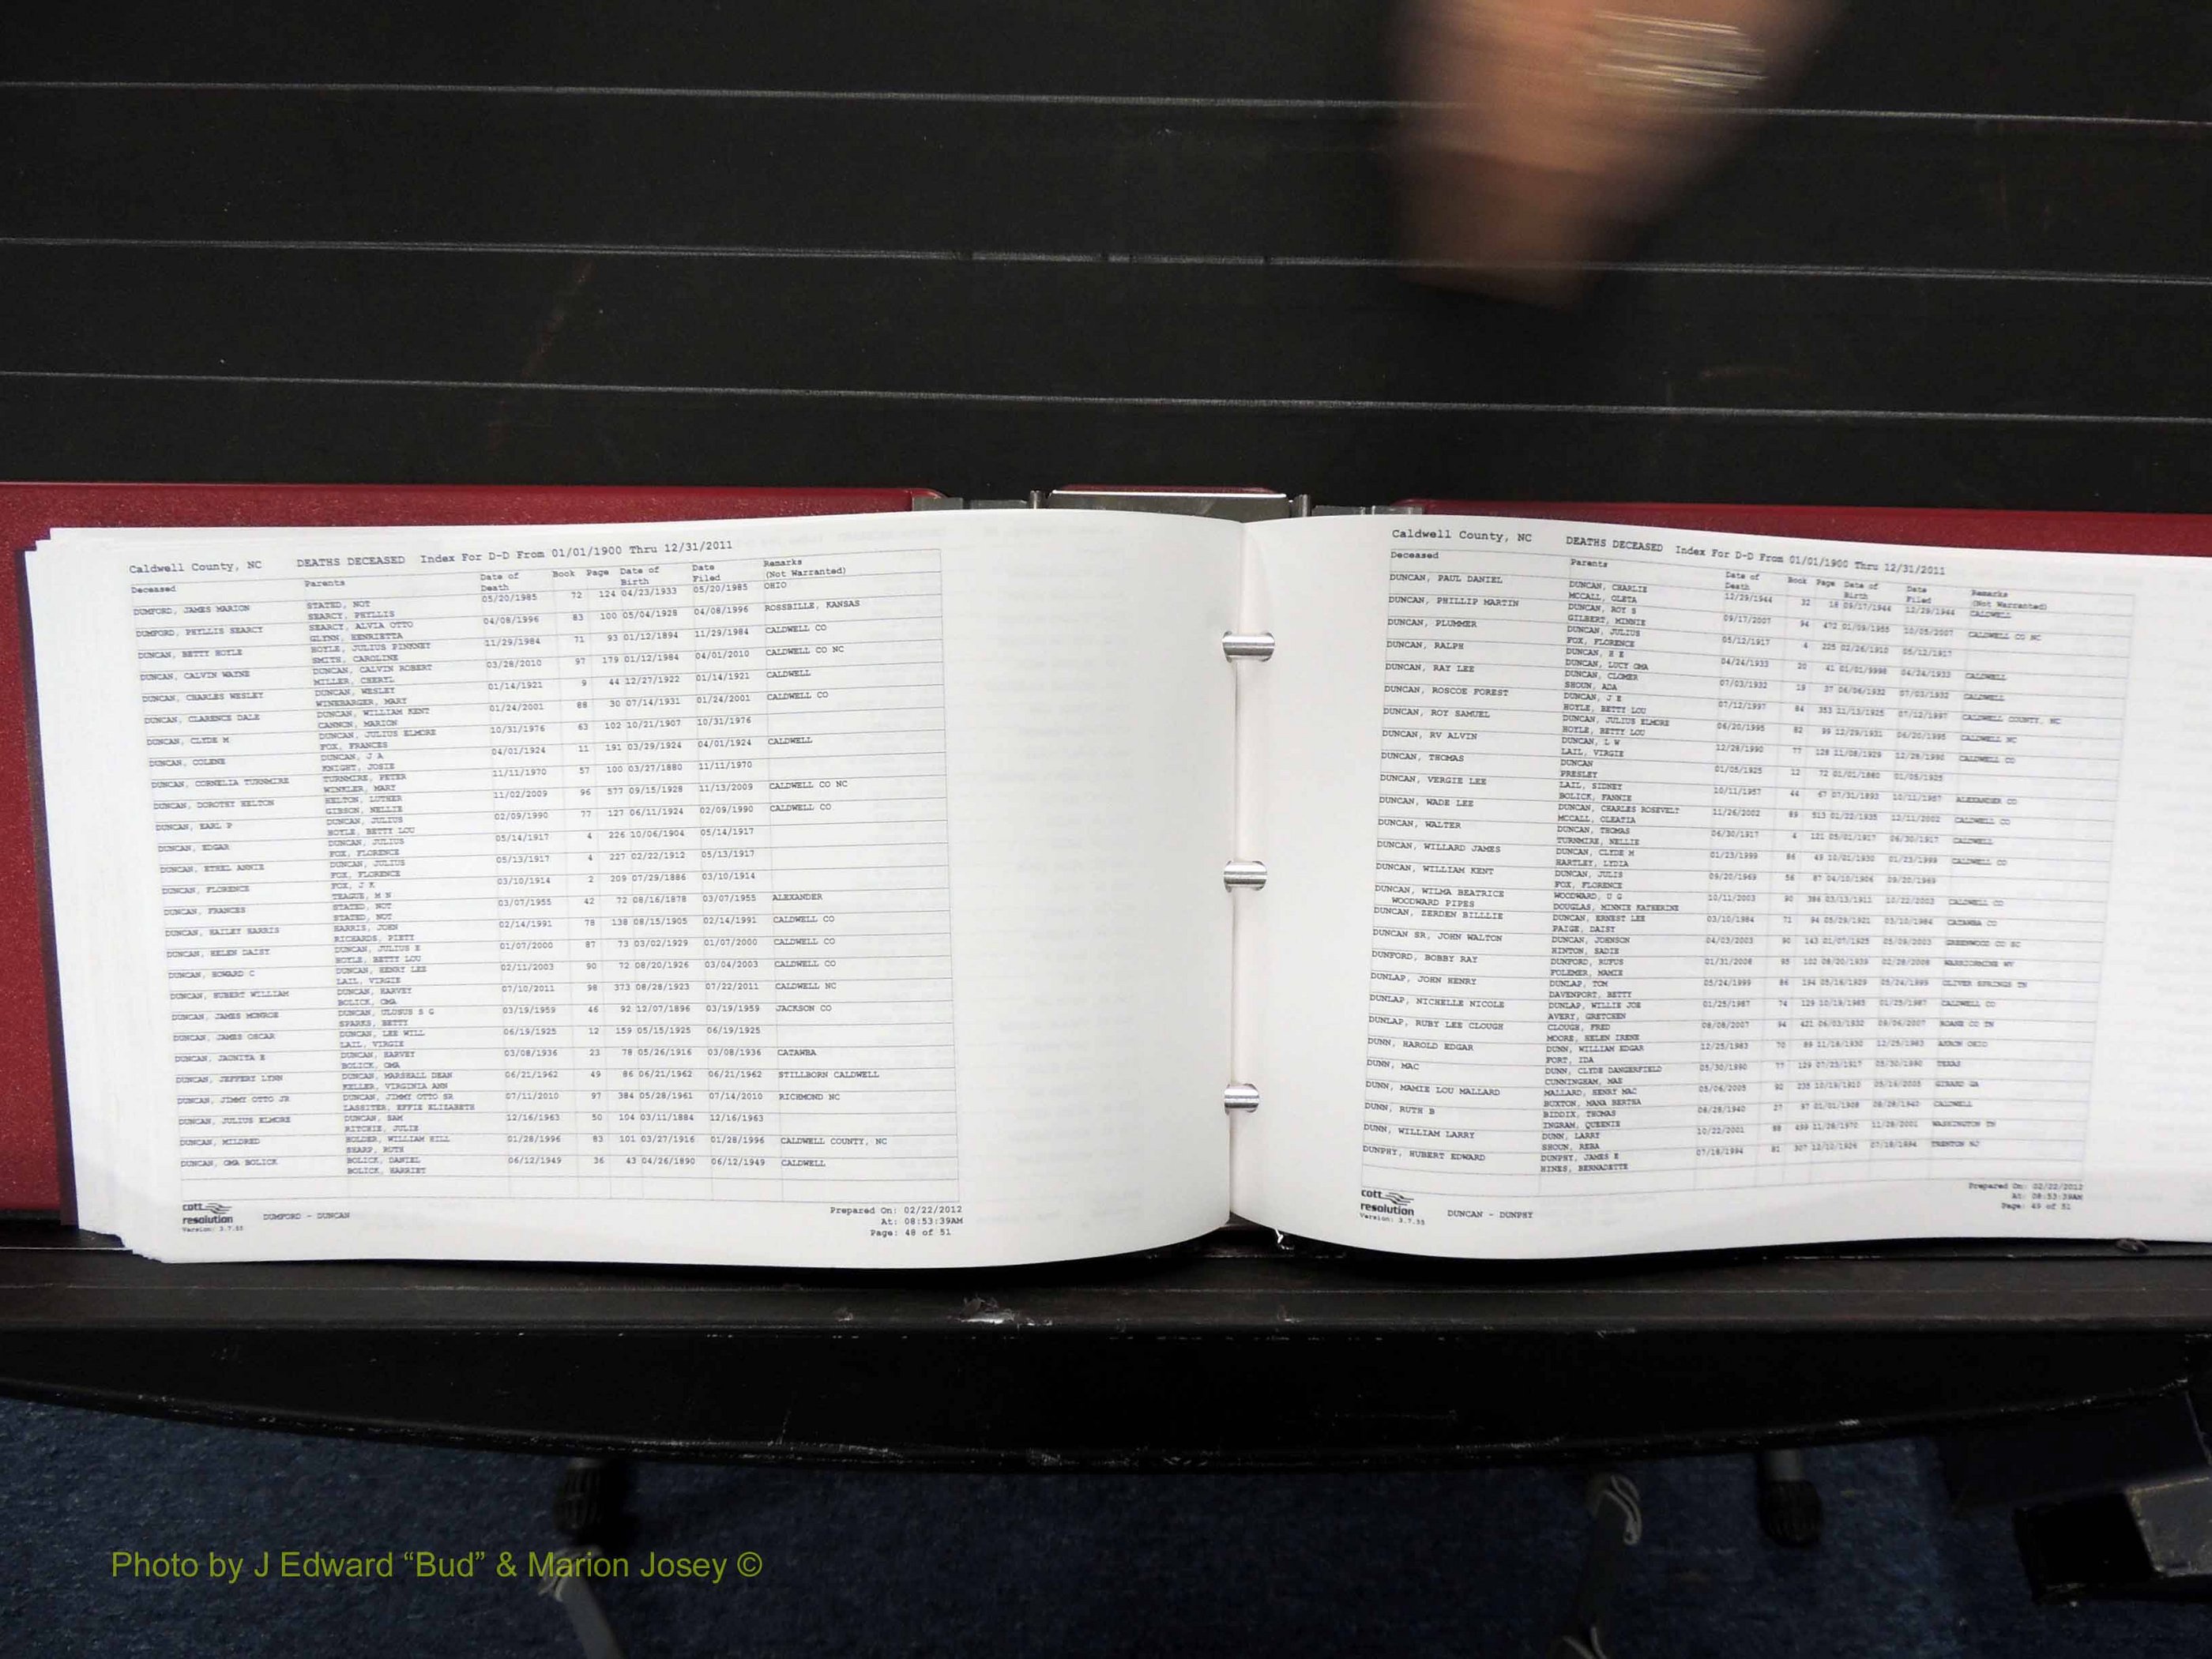 Caldwell County, NC DEATHS DECEASED Index For D-D From 01/01/1900 Thru 12/31/2011
Deceased Parents Date of Death Book Page Date of Birth Date Filed Remarks (Not Warranted)
DUMFORD, JAMES MARION STATED, NOT 05/20/1985 72 124 04/23/1933 05/20/1985 OHIO
SEARCY, PHYLLIS
DUMFORD, PHYLLIS SEARCY SEARCY, ALVIA OTTO 04/08/1996 83 100 05/04/1928 04/08/1996 ROSSBILLE, KANSAS
GLYNN, HENRIETTA
DUNCAN, BETTY HOYLE HOYLE, JULIUS PINKNEY 11/29/1984 71 93 01/12/1894 11/29/1984 CALDWELL CO
SMITH, CAROLINE
DUNCAN, CALVIN WAYNE DUNCAN, CALVIN ROBERT 03/28/2010 97 179 01/12/1984 04/01/2010 CALDWELL CO NC
MILLER, CHERYL
DUNCAN, CHARLES WESLEY DUNCAN, WESLEY 01/14/1921 9 44 12/27/1922 01/14/1921 CALDWELL
WINEBARGER, MARY
DUNCAN, CLARENCE DALE DUNCAN, WILLIAM KENT 01/24/2001 88 30 07/14/1931 01/24/2001 CALDWELL CO
CANNON, MARION
DUNCAN, CLYDE M DUNCAN, JULIUS ELMORE 10/31/1976 63 102 10/21/1907 10/31/1976
FOX, FRANCES
DUNCAN, COLENE DUNCAN, J A 04/01/1924 11 191 03/29/1924 04/01/1924 CALDWELL
KNIGHT, JOSIE
DUNCAN, CORNELIA TURNMIRE TURNMIRE, PETER 11/11/1970 57 100 03/27/1880 11/11/1970
WINKLER, MARY
DUNCAN, DOROTHY HELTON HELTON, LUTHER 11/02/2009 96 577 09/15/1928 11/13/2009 CALDWELL CO NC
GIBSON, NELLIE
DUNCAN, EARL P DUNCAN, JULIUS 02/09/1990 77 127 06/11/1924 02/09/1990 CALDWELL CO
HOYLE, BETTY LOU
DUNCAN, EDGAR DUNCAN, JULIUS 05/14/1917 4 226 10/06/1904 05/14/1917
FOX, FLORENCE
DUNCAN, ETHEL ANNIE DUNCAN, JULIUS 05/13/1917 4 227 02/22/1912 05/13/1917
FOX, FLORENCE
DUNCAN, FLORENCE FOX, J K 03/10/1914 2 209 07/29/1886 03/10/1914
TEAGUE, M N
DUNCAN, FRANCES STATED, NOT 03/07/1955 42 72 08/16/1878 03/07/1955 ALEXANDER
STATED, NOT
DUNCAN, HAILEY HARRIS HARRIS, JOHN 02/14/1991 78 138 08/15/1905 02/14/1991 CALDWELL CO
RICHARDS, PIETY
DUNCAN, HELEN DAISY DUNCAN, JULIUS E 01/07/2000 87 73 03/02/1929 01/07/2000 CALDWELL CO
HOYLE, BETTY LOU
DUNCAN, HOWARD C DUNCAN, HENRY LEE 02/11/2003 90 72 08/20/1926 03/04/2003 CALDWELL CO
LAIL, VIRGIE
DUNCAN, HUBERT WILLIAM DUNCAN, HARVEY 07/10/2011 98 373 08/28/1923 07/22/2011 CALDWELL NC
BOLICK, OMA
DUNCAN, JAMES MONROE DUNCAN, ULOSUS S G 03/19/1959 46 92 12/07/1896 03/19/1959 JACKSON CO
SPARKS, BETTY
DUNCAN, JAMES OSCAR DUNCAN, LEE WILL 06/19/1925 12 159 05/15/1925 06/19/1925
LAIL, VIRGIE
DUNCAN, JAUNITA E DUNCAN, HARVEY 03/08/1936 23 78 05/26/1916 03/08/1936 CATAWBA
BOLICK, OMA
DUNCAN, JEFFERY LYNN DUNCAN, MARSHALL DEAN 06/21/1962 49 86 06/21/1962 06/21/1962 STILLBORN CALDWELL
KELLER, VIRGINIA ANN
DUNCAN, JIMMY OTTO JR DUNCAN, JIMMY OTTO SR 07/11/2010 97 384 05/28/1961 07/14/2010 RICHMOND NC
LASSITER, EFFIE ELIZABETH
DUNCAN, JULIUS ELMORE DUNCAN, SAM 12/16/1963 50 104 03/11/1884 12/16/1963
RITCHIE, JULIE
DUNCAN, MILDRED HOLDER, WILLIAM HILL 01/28/1996 83 101 03/27/1916 01/28/1996 CALDWELL COUNTY, NC
SHARP, RUTH
DUNCAN, OMA BOLICK BOLICK, DANIEL 06/12/1949 36 43 04/26/1890 06/12/1949 CALDWELL
BOLICK, HARRIET
cott resolution
Version: 3.7.55
DUMFORD - DUNCAN
Prepared On: 02/22/2012
At: 08:53:39AM
Page: 48 of 51
Caldwell County, NC DEATHS DECEASED Index For D-D From 01/01/1900 Thru 12/31/2011
Deceased Parents Date of Death Book Page Date of Birth Date Filed Remarks (Not Warranted)
DUNCAN, PAUL DANIEL DUNCAN, CHARLIE 12/29/1944 32 18 09/17/1944 12/29/1944 CALDWELL
MCCALL, OLETA
DUNCAN, PHILLIP MARTIN DUNCAN, ROY S 09/17/2007 94 472 01/09/1955 10/05/2007 CALDWELL CO NC
GILBERT, MINNIE
DUNCAN, PLUMMER DUNCAN, JULIUS 05/12/1917 4 225 02/26/1910 05/12/1917
FOX, FLORENCE
DUNCAN, RALPH DUNCAN, E E 04/24/1933 20 41 01/01/9998 04/24/1933 CALDWELL
DUNCAN, LUCY OMA
DUNCAN, RAY LEE DUNCAN, CLOMER 07/03/1932 19 37 06/06/1932 07/03/1932 CALDWELL
SHOUN, ADA
DUNCAN, ROSCOE FOREST DUNCAN, J E 07/12/1997 84 353 11/13/1925 07/12/1997 CALDWELL COUNTY, NC
HOYLE, BETTY LOU
DUNCAN, ROY SAMUEL DUNCAN, JULIUS ELMORE 06/20/1995 82 99 12/29/1931 06/20/1995 CALDWELL NC
HOYLE, BETTY LOU
DUNCAN, RV ALVIN DUNCAN, L W 12/28/1990 77 128 11/08/1929 12/28/1990 CALDWELL CO
LAIL, VIRGIE
DUNCAN, THOMAS DUNCAN 01/05/1925 12 72 01/01/1860 01/05/1925
PRESLEY
DUNCAN, VERGIE LEE LAIL, SIDNEY 10/11/1957 44 67 07/31/1893 10/11/1957 ALEXANDER CO
BOLICK, FANNIE
DUNCAN, WADE LEE DUNCAN, CHARLES ROSEVELT 11/26/2002 89 513 01/22/1935 12/11/2002 CALDWELL CO
MCCALL, CLEATIA
DUNCAN, WALTER DUNCAN, THOMAS 06/30/1917 4 121 05/01/1917 06/30/1917 CALDWELL
TURNMIRE, NELLIE
DUNCAN, WILLARD JAMES DUNCAN, CLYDE M 01/23/1999 86 49 10/01/1930 01/23/1999 CALDWELL CO
HARTLEY, LYDIA
DUNCAN, WILLIAM KENT DUNCAN, JULIS 09/20/1969 56 87 04/10/1906 09/20/1969
FOX, FLORENCE
DUNCAN, WILMA BEATRICE WOODWARD, U G 10/11/2003 90 386 03/13/1911 10/22/2003 CALDWELL CO
WOODWARD PIPES DOUGLAS, MINNIE KATHERINE
DUNCAN, ZERDEN BILLLIE DUNCAN, ERNEST LEE 03/10/1984 71 94 05/29/1921 03/10/1984 CATAWBA CO
PAIGE, DAISY
DUNCAN SR, JOHN WALTON DUNCAN, JOHNSON 04/03/2003 90 143 01/07/1925 05/09/2003 GREENWOOD CO SC
HINTON, SADIE
DUNFORD, BOBBY RAY DUNFORD, RUFUS 01/31/2008 95 102 08/20/1939 02/28/2008 WARRIORMINE WV
FOLEMER, MAMIE
DUNLAP, JOHN HENRY DUNLAP, TOM 05/24/1999 86 194 05/16/1929 05/24/1999 OLIVER SPRINGS TN
DAVENPORT, BETTY
DUNLAP, NICHELLE NICOLE DUNLAP, WILLIE JOE 01/25/1987 74 129 10/19/1985 01/25/1987 CALDWELL CO
AVERY, GRETCHEN
DUNLAP, RUBY LEE CLOUGH CLOUGH, FRED 08/08/2007 94 421 06/03/1932 09/06/2007 ROANE CO TN
MOORE, HELEN IRENE
DUNN, HAROLD EDGAR DUNN, WILLIAM EDGAR 12/25/1983 70 89 11/18/1930 12/25/1983 AKRON OHIO
FORT, IDA
DUNN, MAC DUNN, CLYDE DANGERFIELD 05/30/1990 77 129 07/23/1917 05/30/1990 TEXAS
CUNNINGHAM, MAE
DUNN, MAMIE LOU MALLARD MALLARD, HENRY MAC 05/06/2005 92 235 10/19/1910 05/16/2005 GIRARD GA
BUXTON, MANA BERTHA
DUNN, RUTH B BIDDIX, THOMAS 08/28/1940 27 97 01/01/1908 08/28/1940 CALDWELL
INGRAM, QUEENIE
DUNN, WILLIAM LARRY DUNN, LARRY 10/22/2001 88 499 11/28/1970 11/28/2001 WASHINGTON TN
SHOUN, REBA
DUNPHY, HUBERT EDWARD DUNPHY, JAMES E 07/18/1994 81 307 12/10/1926 07/18/1994 TRENTON NJ
HINES, BERNADETTE
cott resolution
Version: 3.7.55
DUNCAN - DUNPHY
Prepared On: 02/22/2012
At: 08:53:39AM
Page: 49 of 51
Photo by J Edward “Bud” & Marion Josey ©